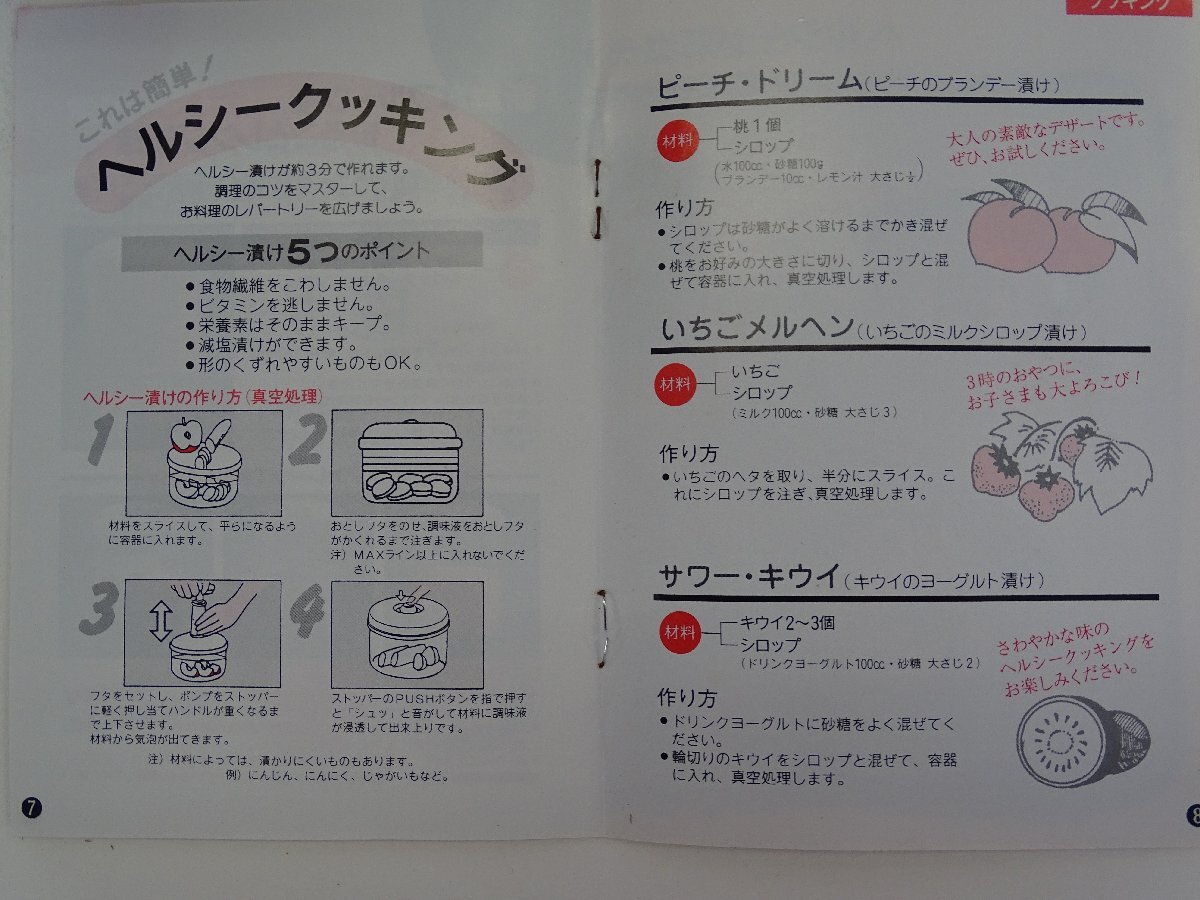 これは簡単!
ヘルシークッキング
ヘルシー漬けが約3分で作れます。
調理のコツをマスターして、
お料理のレパートリーを広げましょう。
ヘルシー漬け5つのポイント
●食物繊維をこわしません。
●ビタミンを逃しません。
●栄養素はそのままキープ。
●減塩漬けができます。
●形のくずれやすいものもOK。
ヘルシー漬けの作り方(真空処理)
1
材料をスライスして、平らになるよう
に容器に入れます。
2
おとしブタをのせ、調味液をおとしブタ
がかくれるまで注ぎます。
注)MAXライン以上に入れないでくだ
さい。
3
フタをセットし、ポンプをストッパー
に軽く押し当てハンドルが重くなるま
で上下させます。
材料から気泡が出てきます。
4
ストッパーのPUSHボタンを指で押す
と「シュッ」と音がして材料に調味液
が浸透して出来上りです。
注)材料によっては、漬かりにくいものもあります。
例)にんじん、にんにく、じゃがいもなど。
7
クッキング
ピーチ・ドリーム(ピーチのブランデー漬け)
材料
桃1個
シロップ
(水100cc・砂糖100g
ブランデー10cc・レモン汁 大さじ½)
大人の素敵なデザートです。
ぜひ、お試しください。
作り方
●シロップは砂糖がよく溶けるまでかき混ぜ
てください。
●桃をお好みの大きさに切り、シロップと混
ぜて容器に入れ、真空処理します。
いちごメルヘン(いちごのミルクシロップ漬け)
材料
いちご
シロップ
(ミルク100cc・砂糖 大さじ3)
3時のおやつに、
お子さまも大よろこび!
作り方
●いちごのヘタを取り、半分にスライス。こ
れにシロップを注ぎ、真空処理します。
サワー・キウイ(キウイのヨーグルト漬け)
材料
キウイ2〜3個
シロップ
(ドリンクヨーグルト100cc・砂糖 大さじ2)
さわやかな味の
ヘルシークッキングを
お楽しみください。
作り方
●ドリンクヨーグルトに砂糖をよく混ぜてく
ださい。
●輪切りのキウイをシロップと混ぜて、容器
に入れ、真空処理します。
8